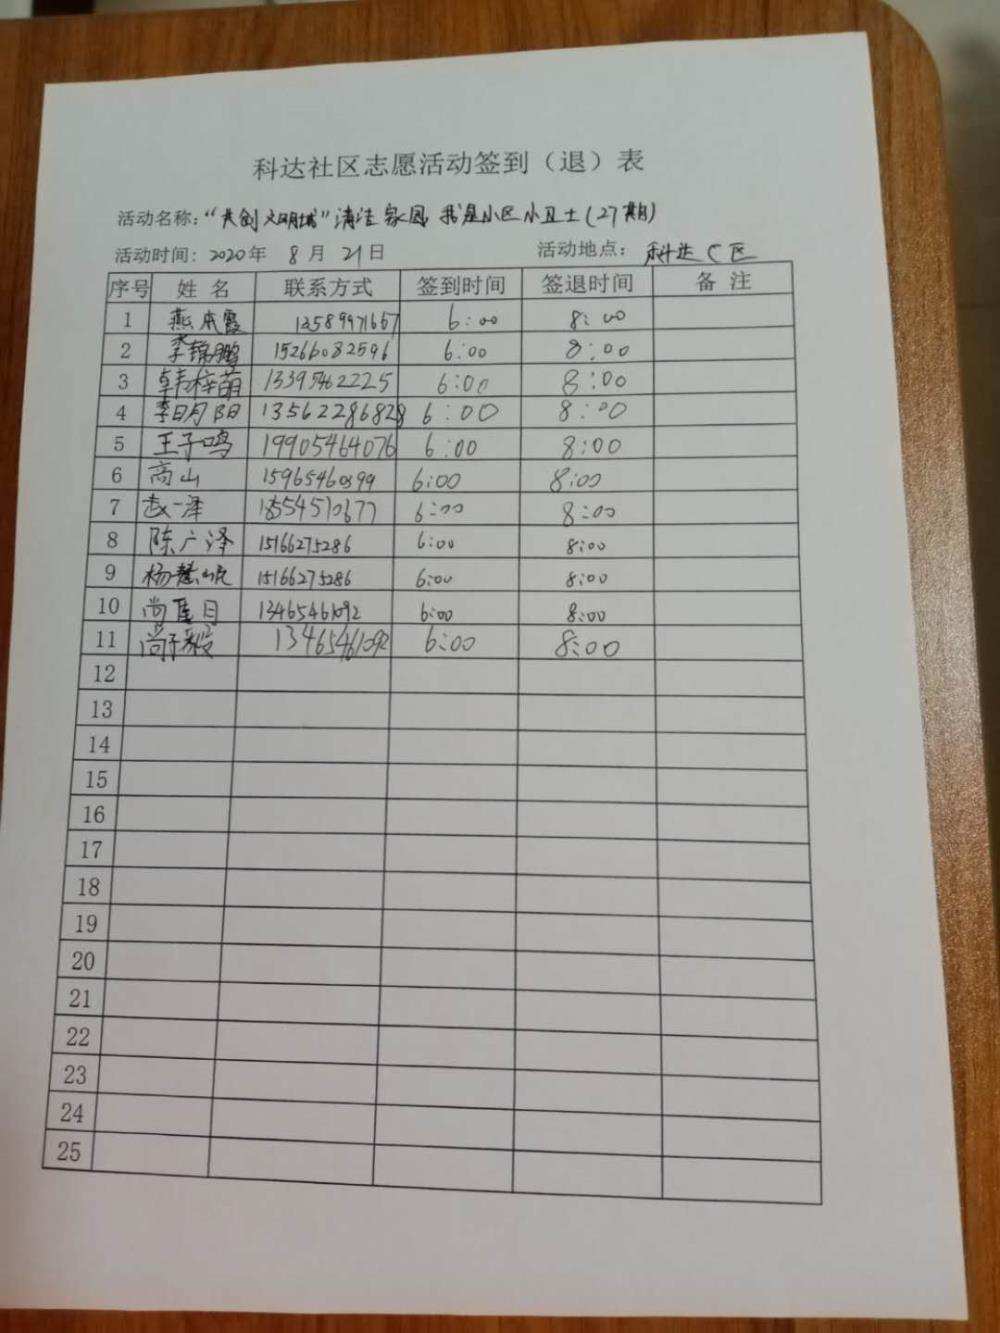 科达社区志愿活动签到（退）表
活动名称：“共创文明城”清洁家园 我是小区小卫士（27期）
活动时间：2020年 8月 21日 活动地点：科达C区
序号 姓名 联系方式 签到时间 签退时间 备注
1 燕本霞 13589971667 6:00 8:00
2 李锦鹏 15266082596 6:00 8:00
3 韩梓萌 13395462225 6:00 8:00
4 李明阳 13562286828 6:00 8:00
5 王子鸣 19905464076 6:00 8:00
6 高山 15965460899 6:00 8:00
7 赵一泽 18554510677 6:00 8:00
8 陈广泽 15166275286 6:00 8:00
9 杨慧岷 15166275286 6:00 8:00
10 尚 13465461092 6:00 8:00
11 尚子毅 13465461092 6:00 8:00
12
13
14
15
16
17
18
19
20
21
22
23
24
25